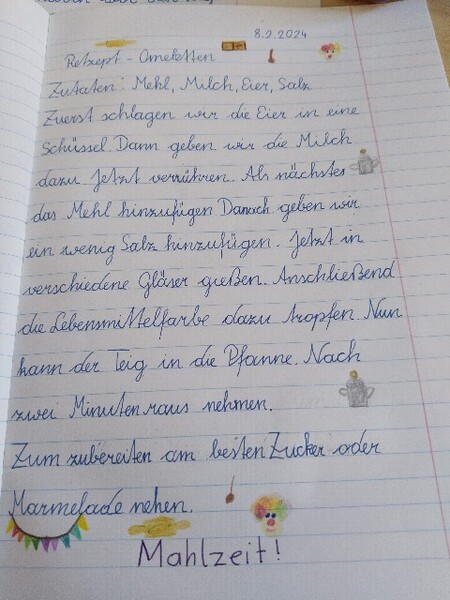 8.2.2024
Retzept - Omeletten
Zutaten: Mehl, Milch, Eier, Salz
Zuerst schlagen wir die Eier in eine
Schüssel. Dann geben wir die Milch
dazu. Jetzt verrühren. Als nächstes
das Mehl hinzufügen. Danach geben wir
ein wenig Salz hinzufügen. Jetzt in
verschiedene Gläser gießen. Anschließend
die Lebensmittelfarbe dazu tropfen. Nun
kann der Teig in die Pfanne. Nach
zwei Minuten raus nehmen.
Zum zubereiten am besten Zucker oder
Marmelade nehen.
Mahlzeit!